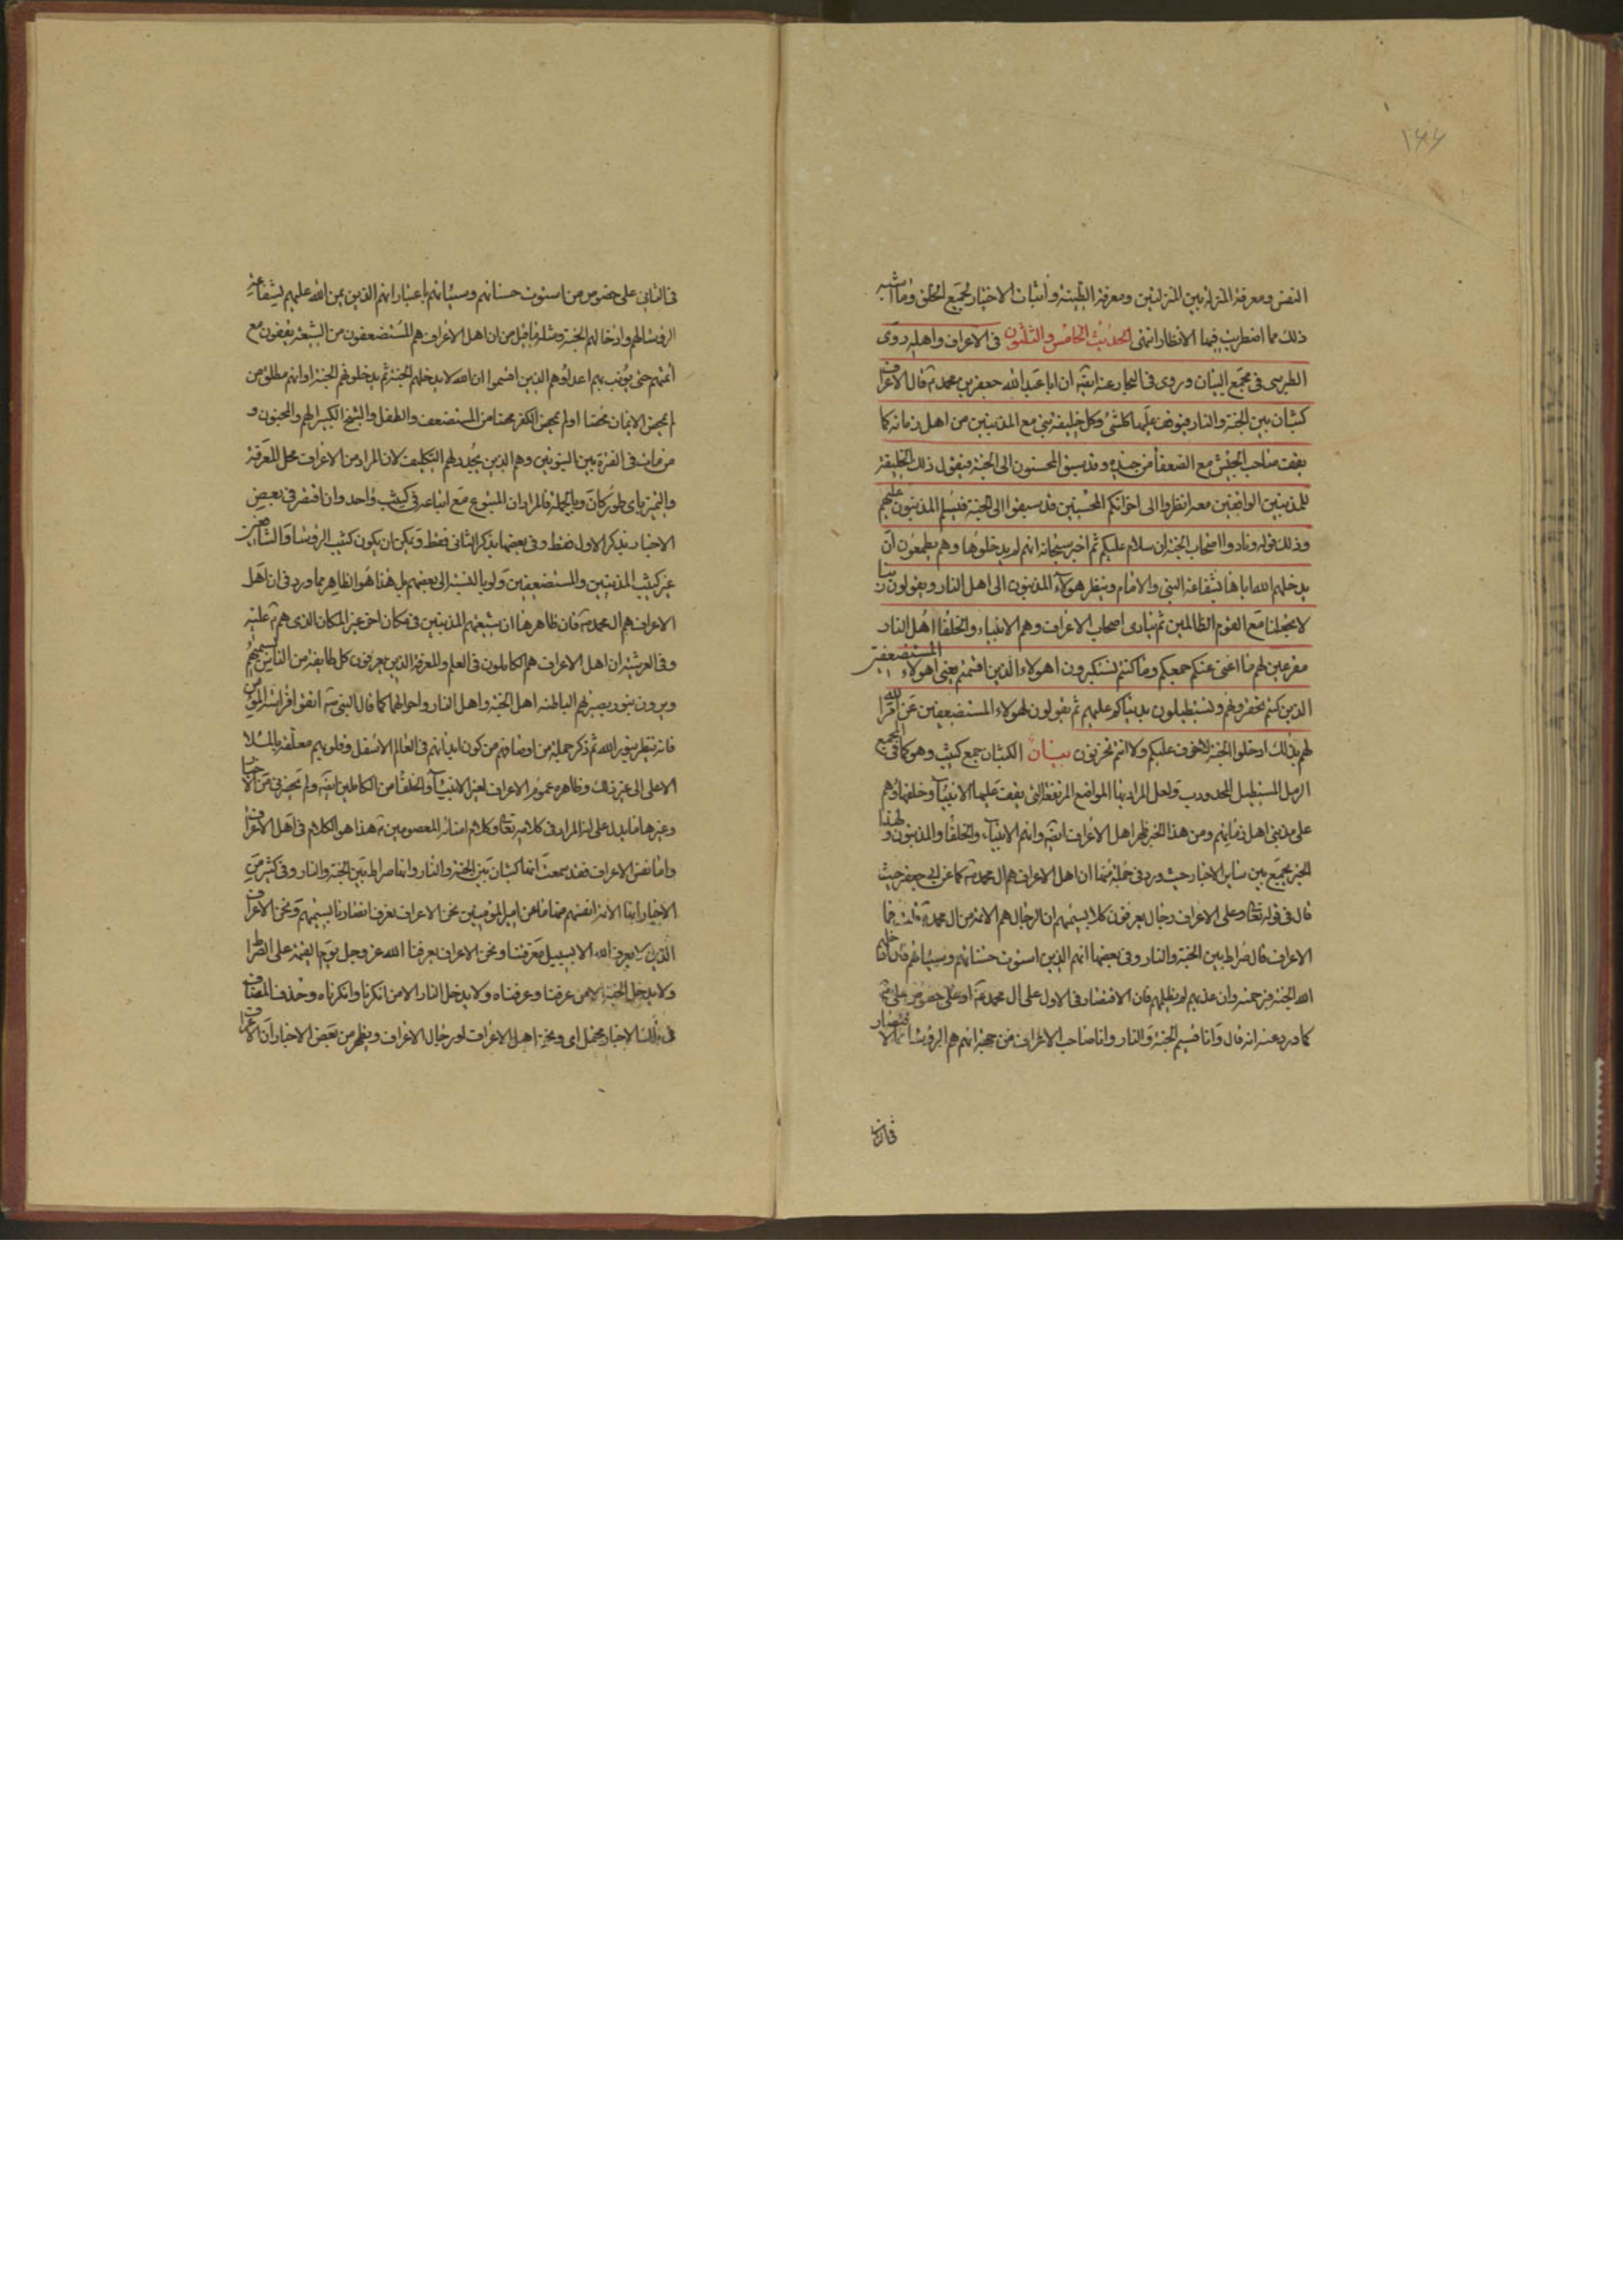 ١٤٤
النفس ومعرفة المنزلة بين المنزلتين ومعرفة الطينة واثبات الاختيار لجميع الخلق وما اشبه
ذلك مما اضطربت فيها الانظار انتهى الحديث الخامس والثلثون فى الاعراف واهله روى
الطبرسى فى مجمع البيان وروى فى البحار عنه ايضا ان ابا عبد الله جعفر بن محمد قال الاعراف
كثبان بين الجنة والنار فيوقف عليها كل نبى وكل خليفة نبى مع المذنبين من اهل زمانه كما
يقف صاحب الجيش مع الضعفا من جنده وقد سبق المحسنون الى الجنة فيقول ذلك الخليفة
للمذنبين الواقفين معه انظروا الى اخوانكم المحسنين قد سبقوا الى الجنة فيسلم المذنبون عليهم
وذلك قوله ونادوا اصحاب الجنة ان سلام عليكم ثم اخبر سبحانه انهم لم يدخلوها وهم يطمعون ان
يدخلهم الله اياها بشفاعة النبى والامام وينظر هولاء المذنبون الى اهل النار ويقولون ربنا
لا تجعلنا مع القوم الظالمين ثم ينادى اصحاب الاعراف وهم الانبياء والخلفا اهل النار
مقرعين لهم ما اغنى عنكم جمعكم وما كنتم تستكبرون اهولاء الذين اقسمتم يعنى اهولاء المستضعفين
الذين كنتم تحقرونهم وتستطيلون بدنياكم عليهم ثم يقولون لهولاء المستضعفين عن امر الله
لهم بذلك ادخلوا الجنة لا خوف عليكم ولا انتم تحزنون بيان الكثبان جمع كثيب وهو كما فى المجمع
الرمل المستطيل المحدودب ولعل المراد بها المواضع المرتفعة التى يقف عليها الانبياء وخلفاؤهم
على مذنبى اهل زمانهم ومن هذا الخبر ظهر اهل الاعراف ايضا وانهم الانبياء والخلفا والمذنبون وبهذا
الخبر يجمع بين ساير الاخبار حيث ورد فى جملة منها ان اهل الاعراف هم ال محمد كما عن ابى جعفر حيث
قال فى قوله تعالى وعلى الاعراف رجال يعرفون كلا بسيمهم ان الرجال هم الائمة من ال محمد قلت فما
الاعراف قال صراط بين الجنة والنار وفى بعضها انهم الذين استوت حسناتهم وسيئاتهم فان ادخلهم
الله الجنة فبرحمته وان عذبهم لم يظلمهم فان الاقتصار فى الاول على ال محمد او على خصوص على
كما ورد عنه انه قال وانا قسيم الجنة والنار وانا صاحب الاعراف من جهة انهم هم الرؤسا كالاقتصار
فى الثانى على خصوص من استوت حسناتهم وسيئاتهم باعتبار انهم الذين يمن الله عليهم بشفاعة
الرؤسا لهم وادخالهم الجنة ومثله ما قيل من ان اهل الاعراف هم المستضعفون من الشيعة يقفون مع
ائمتهم حتى يؤنب بهم اعداؤهم الذين اقسموا ان الله لا يدخلهم الجنة ثم يدخلونهم الجنة او انهم مطلق من
لم يمحض الايمان محضا او لم يمحض الكفر محضا من المستضعف والطفل والشيخ الكبير الهم والمجنون و
من مات فى الفترة بين النبوتين وهم الذين يجدد لهم التكليف لان المراد من الاعراف محل المعرفة
والتميز باى طور كان وبالجملة فالمراد ان المتبوع مع اتباعه فى كثيب واحد وان اقتصر فى بعض
الاخبار بذكر الاول فقط وفى بعضها بذكر الثانى فقط ويمكن ان يكون كثيب الرؤسا والشافعين
غير كثيب المذنبين والمستضعفين ولو بالنسبة الى بعضهم بل هذا هو الظاهر مما ورد فى ان اهل
الاعراف هم ال محمد فان ظاهرها ان شيعتهم المذنبين فى مكان اخر غير المكان الذى هم عليه
وفى العرشية ان اهل الاعراف هم الكاملون فى العلم والمعرفة الذين يعرفون كل طايفة من الناس بسيميهم
ويرون بنور بصيرتهم الباطنة اهل الجنة واهل النار واحوالهما كما قال النبى اتقوا فراسة المؤمن
فانه ينظر بنور الله ثم ذكر جملة من اوصافهم من كون ابدانهم فى العالم الاسفل وقلوبهم معلقة بالملا
الاعلى الى غير ذلك وظاهره عموم الاعراف لغير الانبياء والخلفا من الكاملين ايضا ولم نجد فى من الاخبار
وغيرها ما يدل على انه المراد فى كلامه تعالى وكلام امنائه المعصومين هذا هو الكلام فى اهل الاعراف
واما نفس الاعراف فقد سمعت انها كثبان بين الجنة والنار وانها صراط بين الجنة والنار وفى كثير من
الاخبار انها الائمة انفسهم فمنها ما عن امير المؤمنين نحن الاعراف نعرف انصارنا بسيمهم ونحن الاعراف
الذين لا يعرف الله الا بسبيل معرفتنا ونحن الاعراف يعرفنا الله عز وجل يوم القيمة على الصراط
ولا يدخل الجنة الا من عرفنا وعرفناه ولا يدخل النار الا من انكرنا وانكرناه وحذف المضاف
فى تلك الاخبار محتمل اى ونحن اهل الاعراف او رجال الاعراف ويظهر من بعض الاخبار ان الاعراف